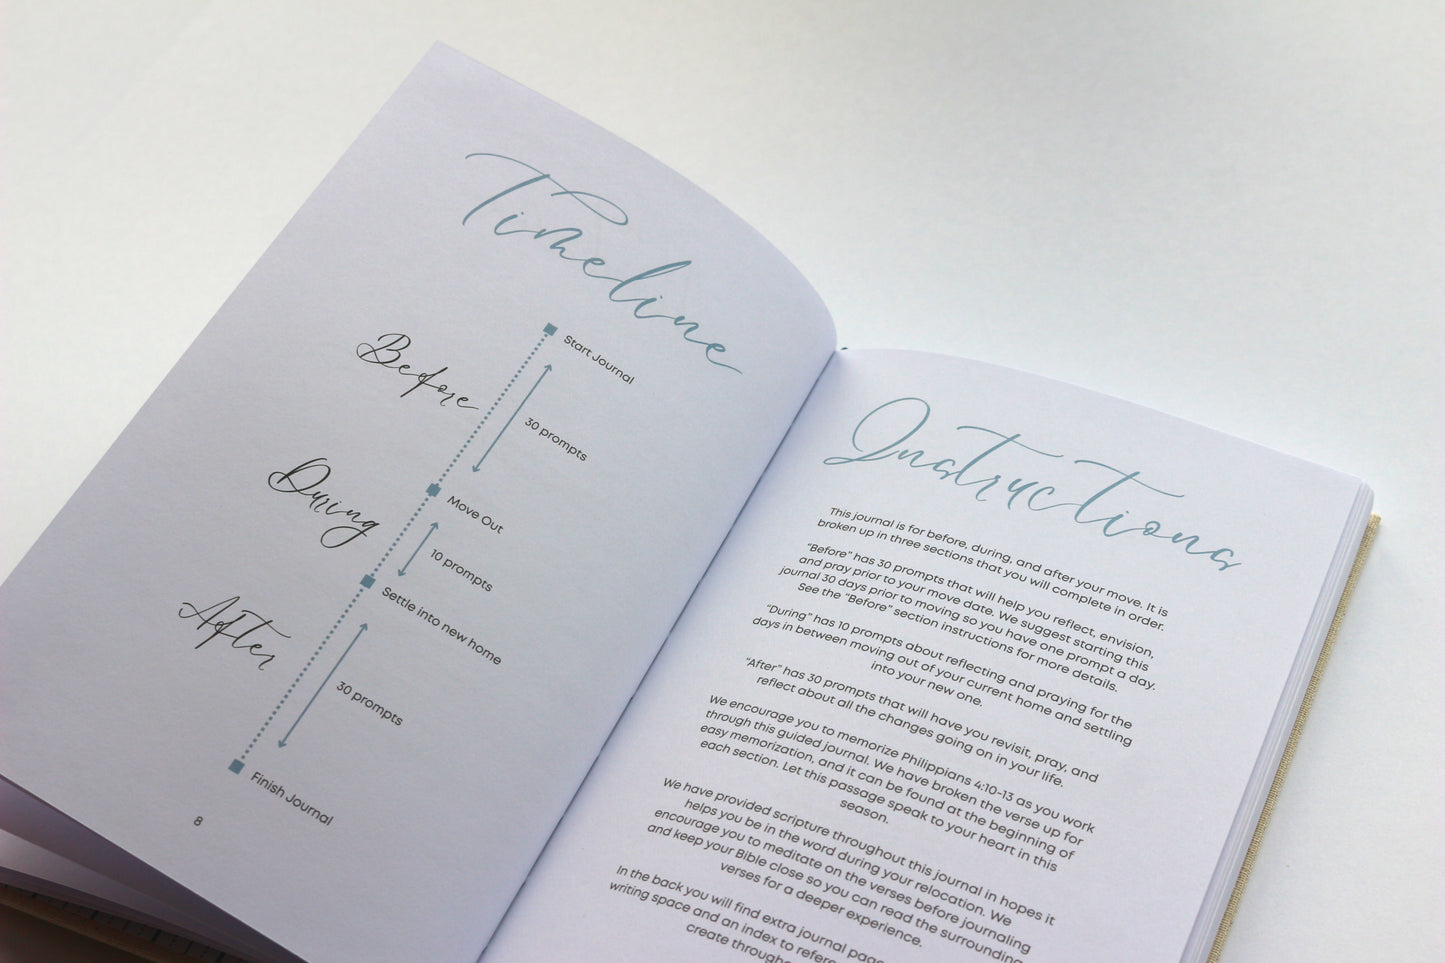 Timeline
Before
Start Journal
30 prompts
During
Move Out
10 prompts
After
Settle into new home
30 prompts
Finish Journal
8
Instructions
This journal is for before, during, and after your move. It is
broken up in three sections that you will complete in order.
“Before” has 30 prompts that will help you reflect, envision,
and pray prior to your move date. We suggest starting this
journal 30 days prior to moving so you have one prompt a day.
See the “Before” section instructions for more details.
“During” has 10 prompts about reflecting and praying for the
days in between moving out of your current home and settling
into your new one.
“After” has 30 prompts that will have you revisit, pray, and
reflect about all the changes going on in your life.
We encourage you to memorize Philippians 4:10-13 as you work
through this guided journal. We have broken the verse up for
easy memorization, and it can be found at the beginning of
each section. Let this passage speak to your heart in this
season.
We have provided scripture throughout this journal in hopes it
helps you be in the word during your relocation. We
encourage you to meditate on the verses before journaling
and keep your Bible close so you can read the surrounding
verses for a deeper experience.
In the back you will find extra journal
writing space and an index to
create